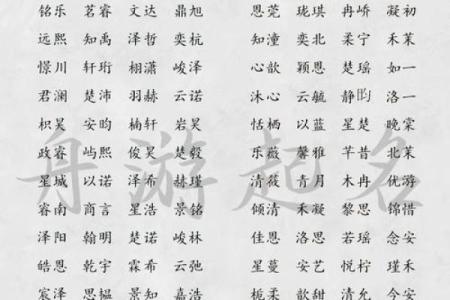 铭乐 茗睿 文达 鼎旭 恩莞 珑琪 冉峤 凝初
远熙 知禹 泽哲 奕杭 知潼 奕北 柔宁 禾茉
憬川 轩珩 栩潇 峻泽 心歆 颖恩 楚瑶 如一
君澜 楚沛 羽赫 云诺 沐心 云毓 静昀 洛一
枳昊 安昀 楠轩 岩游 恬栖 以蓝 星楚 晚棠
政睿 屿熙 俊昊 楚毅 乐薇 馨雅 芊昔 北茉
星城 以诺 泽希 赫瑾 清薇 青月 木冉 优游
睿南 商言 星浩 景铭 倾清 禾凝 黎思 锦惜
泽阳 翰明 楚诺 峻林 佳恩 洛恩 若瑶 念安
皓恩 乾宇 霖希 云弛 星蔓 安艺 悦柠 瑾禾
宸泽 思揾 景知 嘉浩 栀柔 歆甜 清允 今安
丹游起名